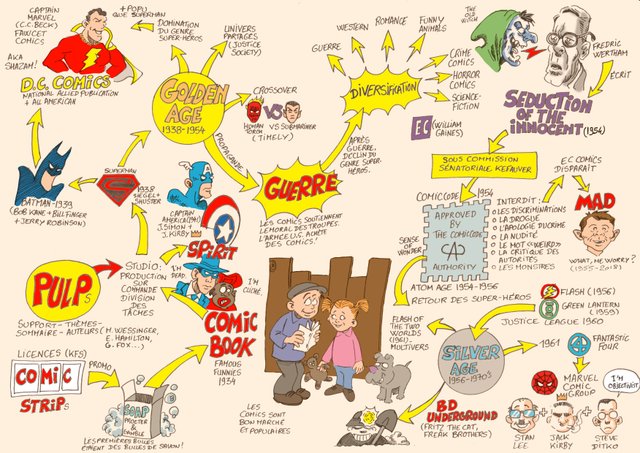 CAPTAIN
MARVEL
(C.C. BECK)
FAWCET
COMICS
AKA
SHAZAM!
+ POPU
QUE SUPERMAN
DOMINATION
DU GENRE
SUPER-HÉROS
UNIVERS
PARTAGÉS
(JUSTICE
SOCIETY)
D.C. COMICS
NATIONAL ALLIED PUBLICATION
+ ALL AMERICAN
GOLDEN
AGE
1938-1954
CROSSOVER
HUMAN
TORCH
VS
SUBMARINER
(TIMELY)
PROPAGANDE
GUERRE
LES COMICS SOUTIENNENT
LE MORAL DES TROUPES.
L'ARMÉE U.S. ACHÈTE
DES COMICS!
APRÈS
GUERRE,
DÉCLIN DU
GENRE SUPER-
HÉROS.
DIVERSIFICATION
GUERRE
WESTERN
ROMANCE
FUNNY
ANIMALS
CRIME
COMICS
HORROR
COMICS
SCIENCE-
FICTION
EC
(WILLIAM
GAINES)
THE
OLD
WITCH
FREDRIC
WERTHAM
ÉCRIT
SEDUCTION
OF THE
INNOCENT
(1954)
SOUS COMMISSION
SÉNATORIALE KEFAUVER
EC COMICS
DISPARAÎT
MAD
WHAT, ME WORRY?
(1955-2018)
COMICCODE
1954
APPROVED
BY
THE COMICCODE
CA
AUTHORITY
INTERDIT:
O LES DISCRIMINATIONS
O LA DROGUE
O L'APOLOGIE DU CRIME
O LA NUDITÉ
O LE MOT «WEIRD»
O LA CRITIQUE DES
AUTORITÉS
O LES MONSTRES
SENSE
OF
WONDER
ATOM AGE 1954-1956
RETOUR DES SUPER-HÉROS
FLASH (1956)
GREEN LANTERN
(1959)
JUSTICE LEAGUE 1960
FLASH OF
THE TWO
WORLDS
(1961).
MULTIVERS
SILVER
AGE
1956-1970s
1961
FANTASTIC
FOUR
MARVEL
COMIC
GROUP
I'M
OBJECTIVIST
STAN
LEE
+
JACK
KIRBY
+
STEVE
DITKO
BD
UNDERGROUND
(FRITZ THE CAT,
FREAK BROTHERS)
BATMAN - 1939
(BOB KANE + BILL FINGER
+ JERRY ROBINSON)
SUPERMAN
1938
SIEGEL +
SHUSTER
CAPTAIN
AMERICA (1941)
J. SIMON +
J. KIRBY
SPIRIT
I'M
DEAD.
I'M
CLICHÉ.
PULPs
STUDIO:
PRODUCTION
SUR
COMMANDE
DIVISION
DES
TÂCHES
SUPPORT - THÈMES -
SOMMAIRE - AUTEURS (M. WESSINGER,
E. HAMILTON,
G. FOX...)
COMIC
BOOK
FAMOUS
FUNNIES
1934
LICENCES (KFS)
COMIC
STRIPs
PROMO
SOAP
PROCTER
&
GAMBLE
LES PREMIÈRES BULLES
ÉTAIENT DES BULLES DE SAVON!
LES
COMICS SONT
BON MARCHÉ
ET POPULAIRES